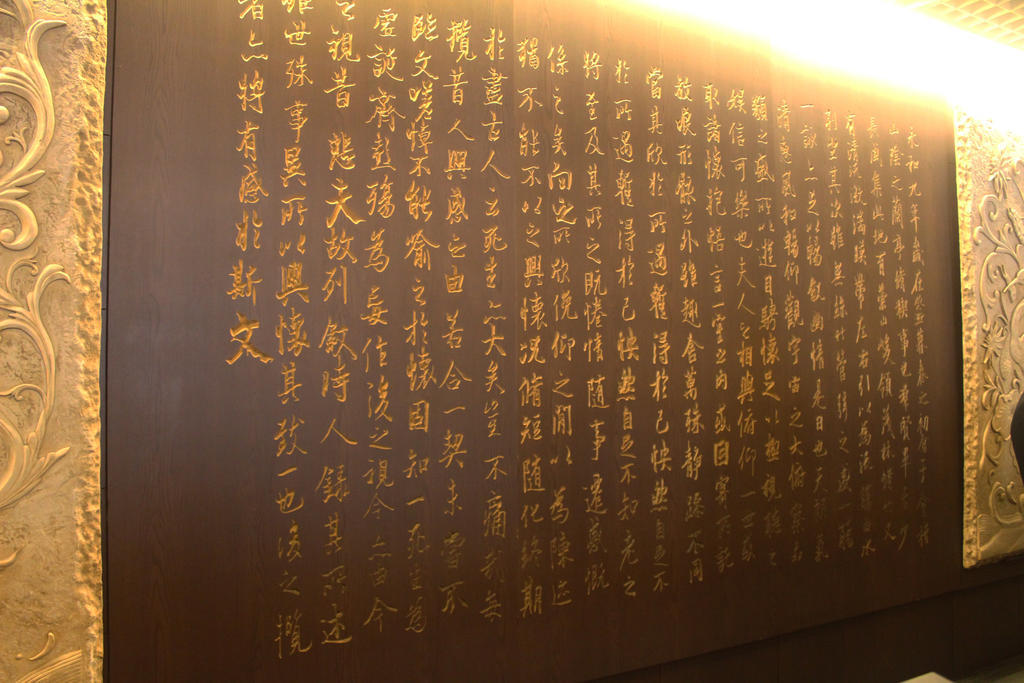 永和九年歲在癸丑暮春之初會于會稽
山陰之蘭亭脩禊事也羣賢畢至少
長咸集此地有崇山峻領茂林脩竹又
有清流激湍暎帶左右引以為流觴曲水
列坐其次雖無絲竹管絃之盛一觴
一詠亦足以暢敘幽情是日也天朗氣
清惠風和暢仰觀宇宙之大俯察品
類之盛所以遊目騁懷足以極視聽之
娛信可樂也夫人之相與俯仰一世或
取諸懷抱悟言一室之內或因寄所託
放浪形骸之外雖趣舍萬殊靜躁不同
當其欣於所遇暫得於己怏然自足不
於所遇暫得於己怏然自足不知老之
將至及其所之既惓情隨事遷感慨
係之矣向之所欣俛仰之閒以為陳迹
猶不能不以之興懷況脩短隨化終期
於盡古人云死生亦大矣豈不痛哉每
攬昔人興感之由若合一契未嘗不
臨文嗟悼不能喻之於懷固知一死生為
虛誕齊彭殤為妄作後之視今亦由今
之視昔悲夫故列敘時人錄其所述
雖世殊事異所以興懷其致一也後之攬
者亦將有感於斯文